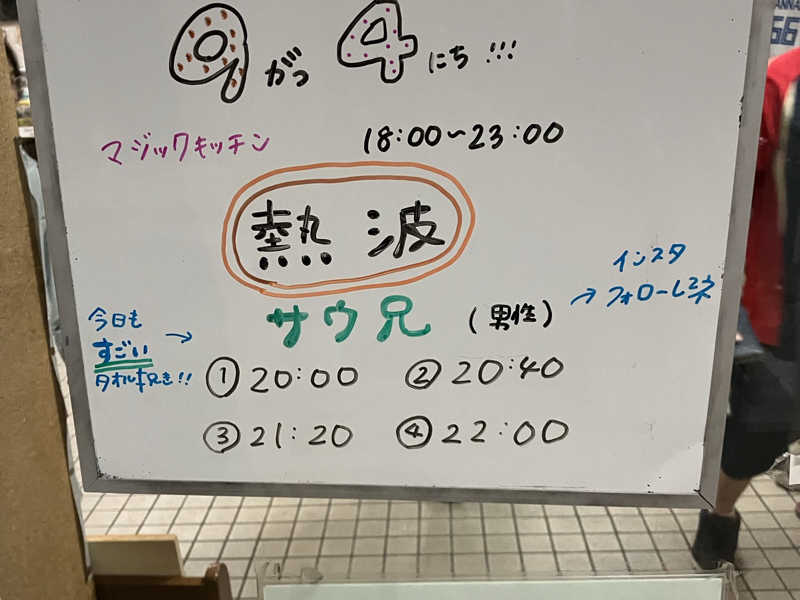 9がつ 4にち!!!
マジックキッチン 18:00〜23:00
熱波
サウ兄 (男性)
今日も
すごい →
タオル捌き!!
インスタ
→ フォローしてネ
① 20:00 ② 20:40
③ 21:20 ④ 22:00
66